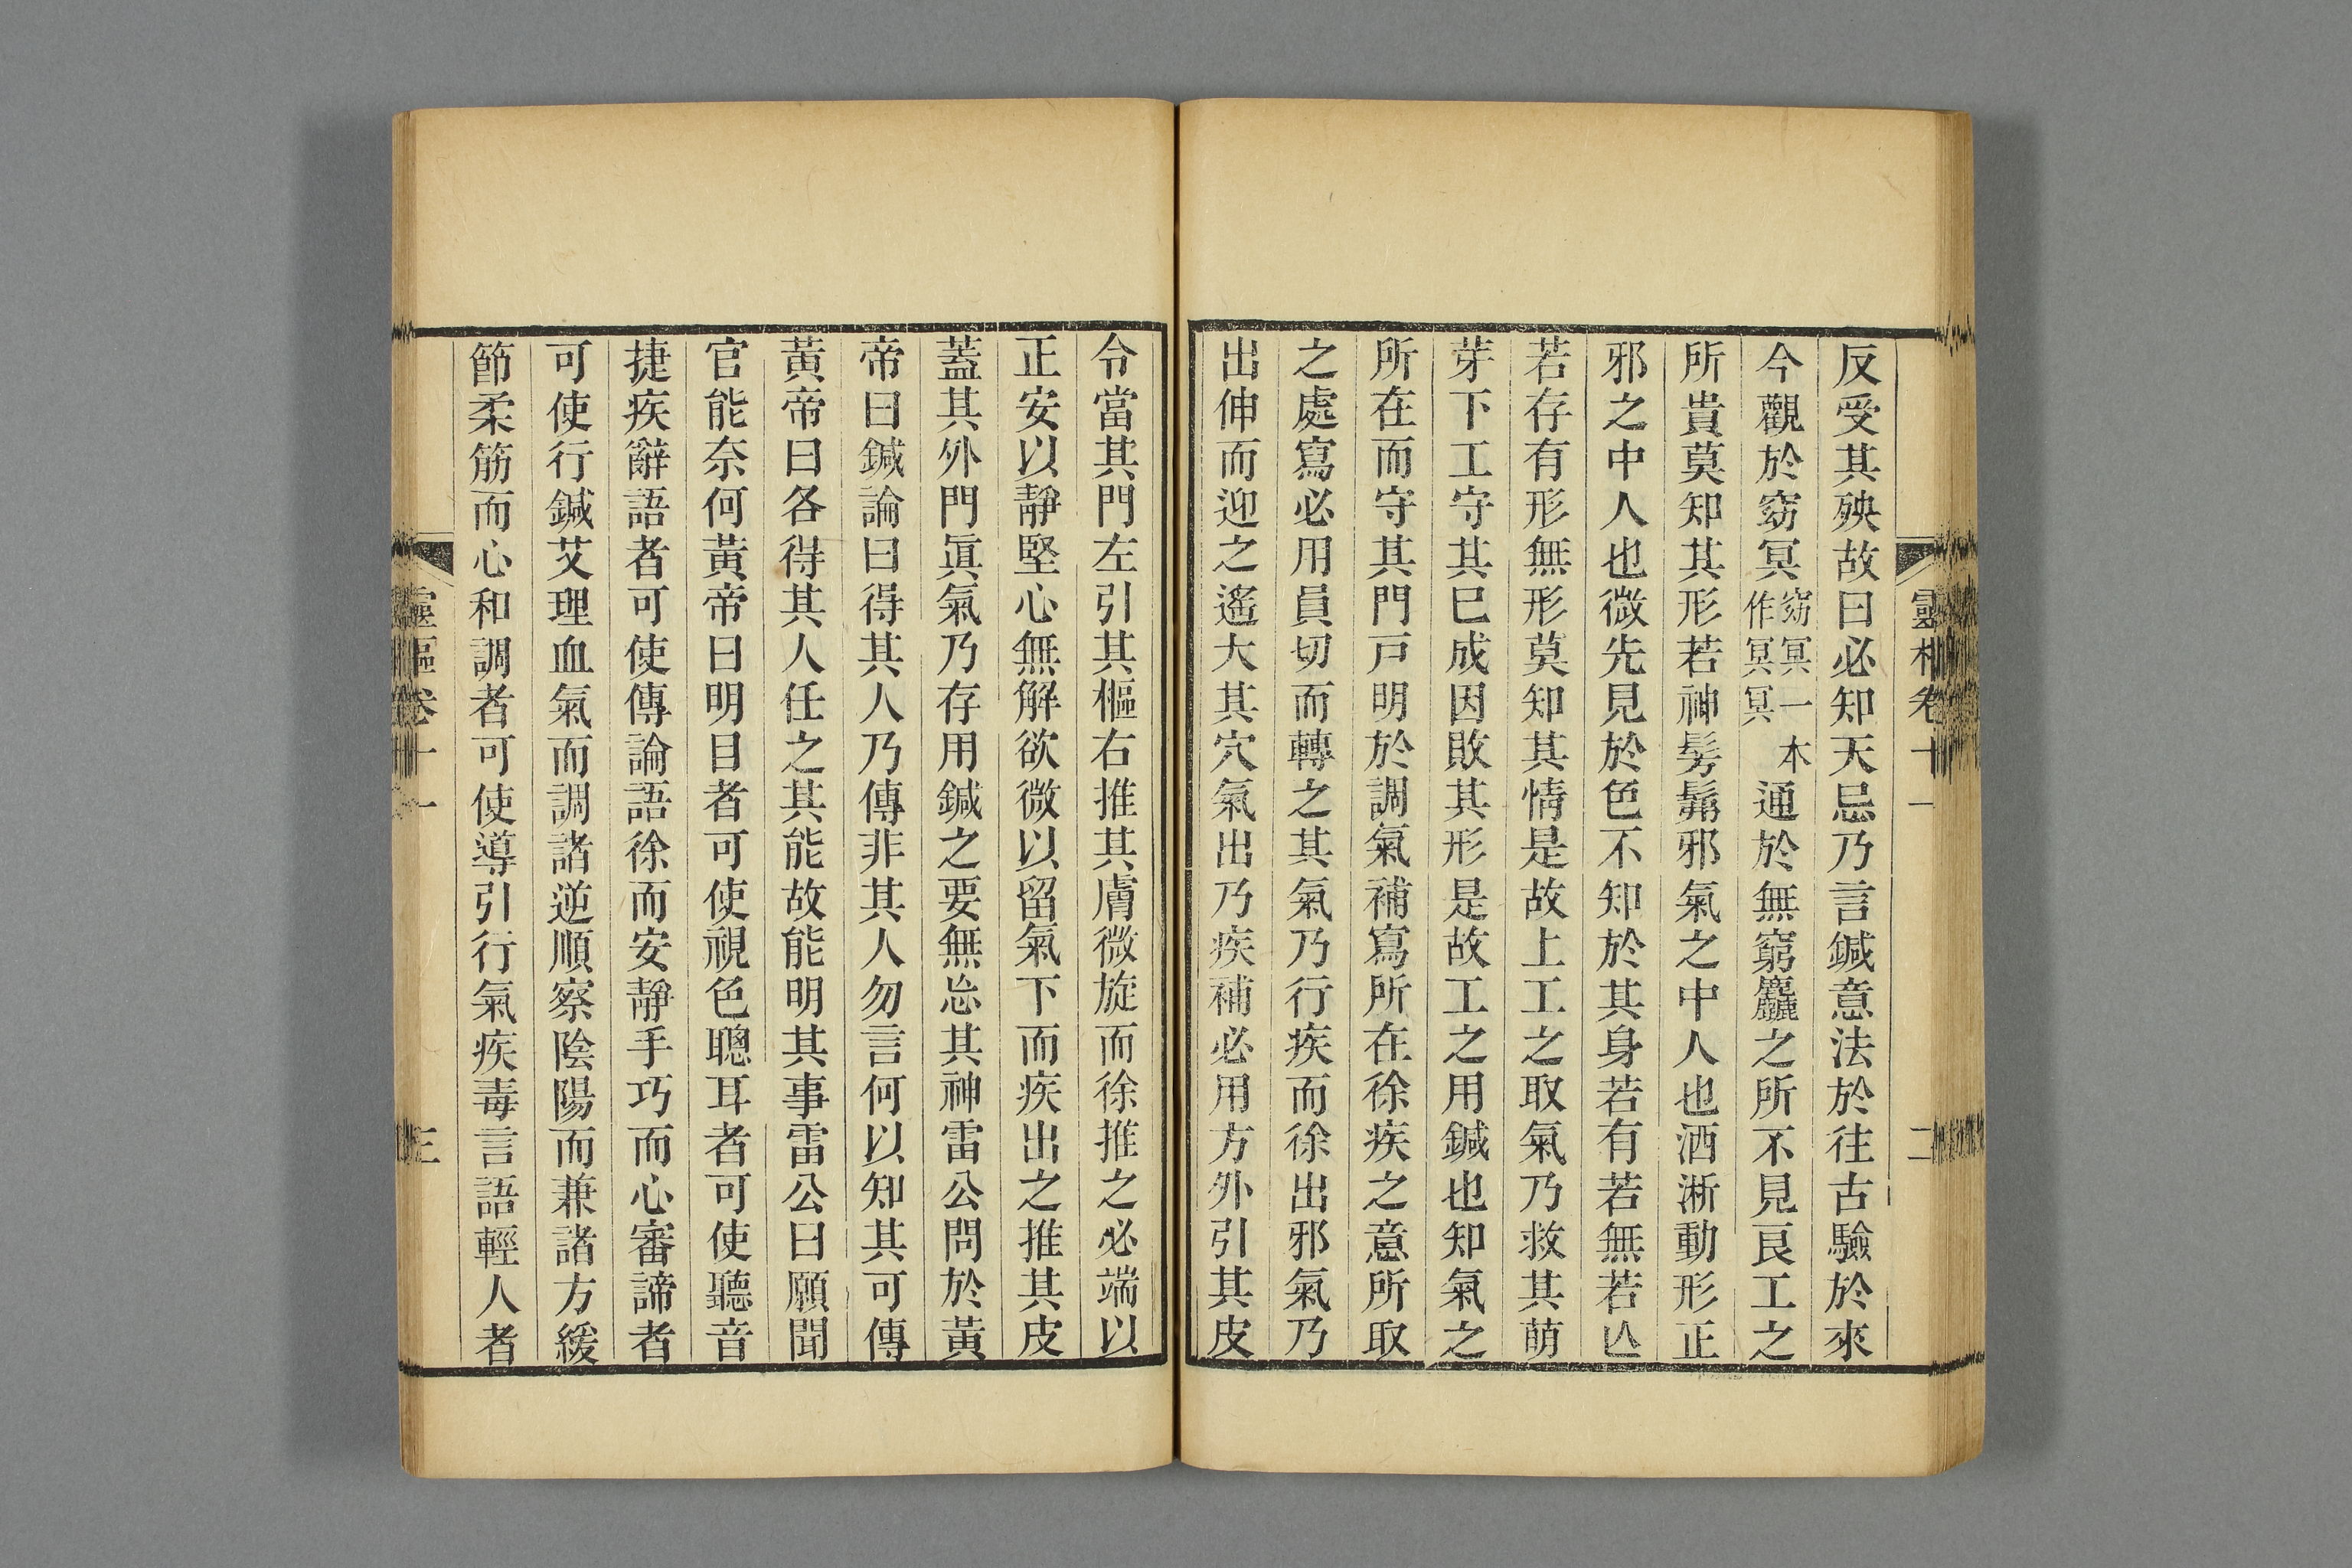 反受其殃故曰必知天忌乃言鍼意法於往古驗於來
今觀於窈冥窈冥一本作冥冥通於無窮麤之所不見良工之
所貴莫知其形若神髣髴邪氣之中人也洒淅動形正
邪之中人也微先見於色不知於其身若有若無若亾
若存有形無形莫知其情是故上工之取氣乃救其萌
芽下工守其已成因敗其形是故工之用鍼也知氣之
所在而守其門戸明於調氣補寫所在徐疾之意所取
之處寫必用員切而轉之其氣乃行疾而徐出邪氣乃
出伸而迎之遙大其穴氣出乃疾補必用方外引其皮
令當其門左引其樞右推其膚微旋而徐推之必端以
正安以靜堅心無解欲微以留氣下而疾出之推其皮
蓋其外門眞氣乃存用鍼之要無忘其神雷公問於黃
帝曰鍼論曰得其人乃傳非其人勿言何以知其可傳
黃帝曰各得其人任之其能故能明其事雷公曰願聞
官能奈何黃帝曰明目者可使視色聰耳者可使聽音
捷疾辭語者可使傳論語徐而安靜手巧而心審諦者
可使行鍼艾理血氣而調諸逆順察陰陽而兼諸方緩
節柔筋而心和調者可使導引行氣疾毒言語輕人者
靈樞卷十一
三